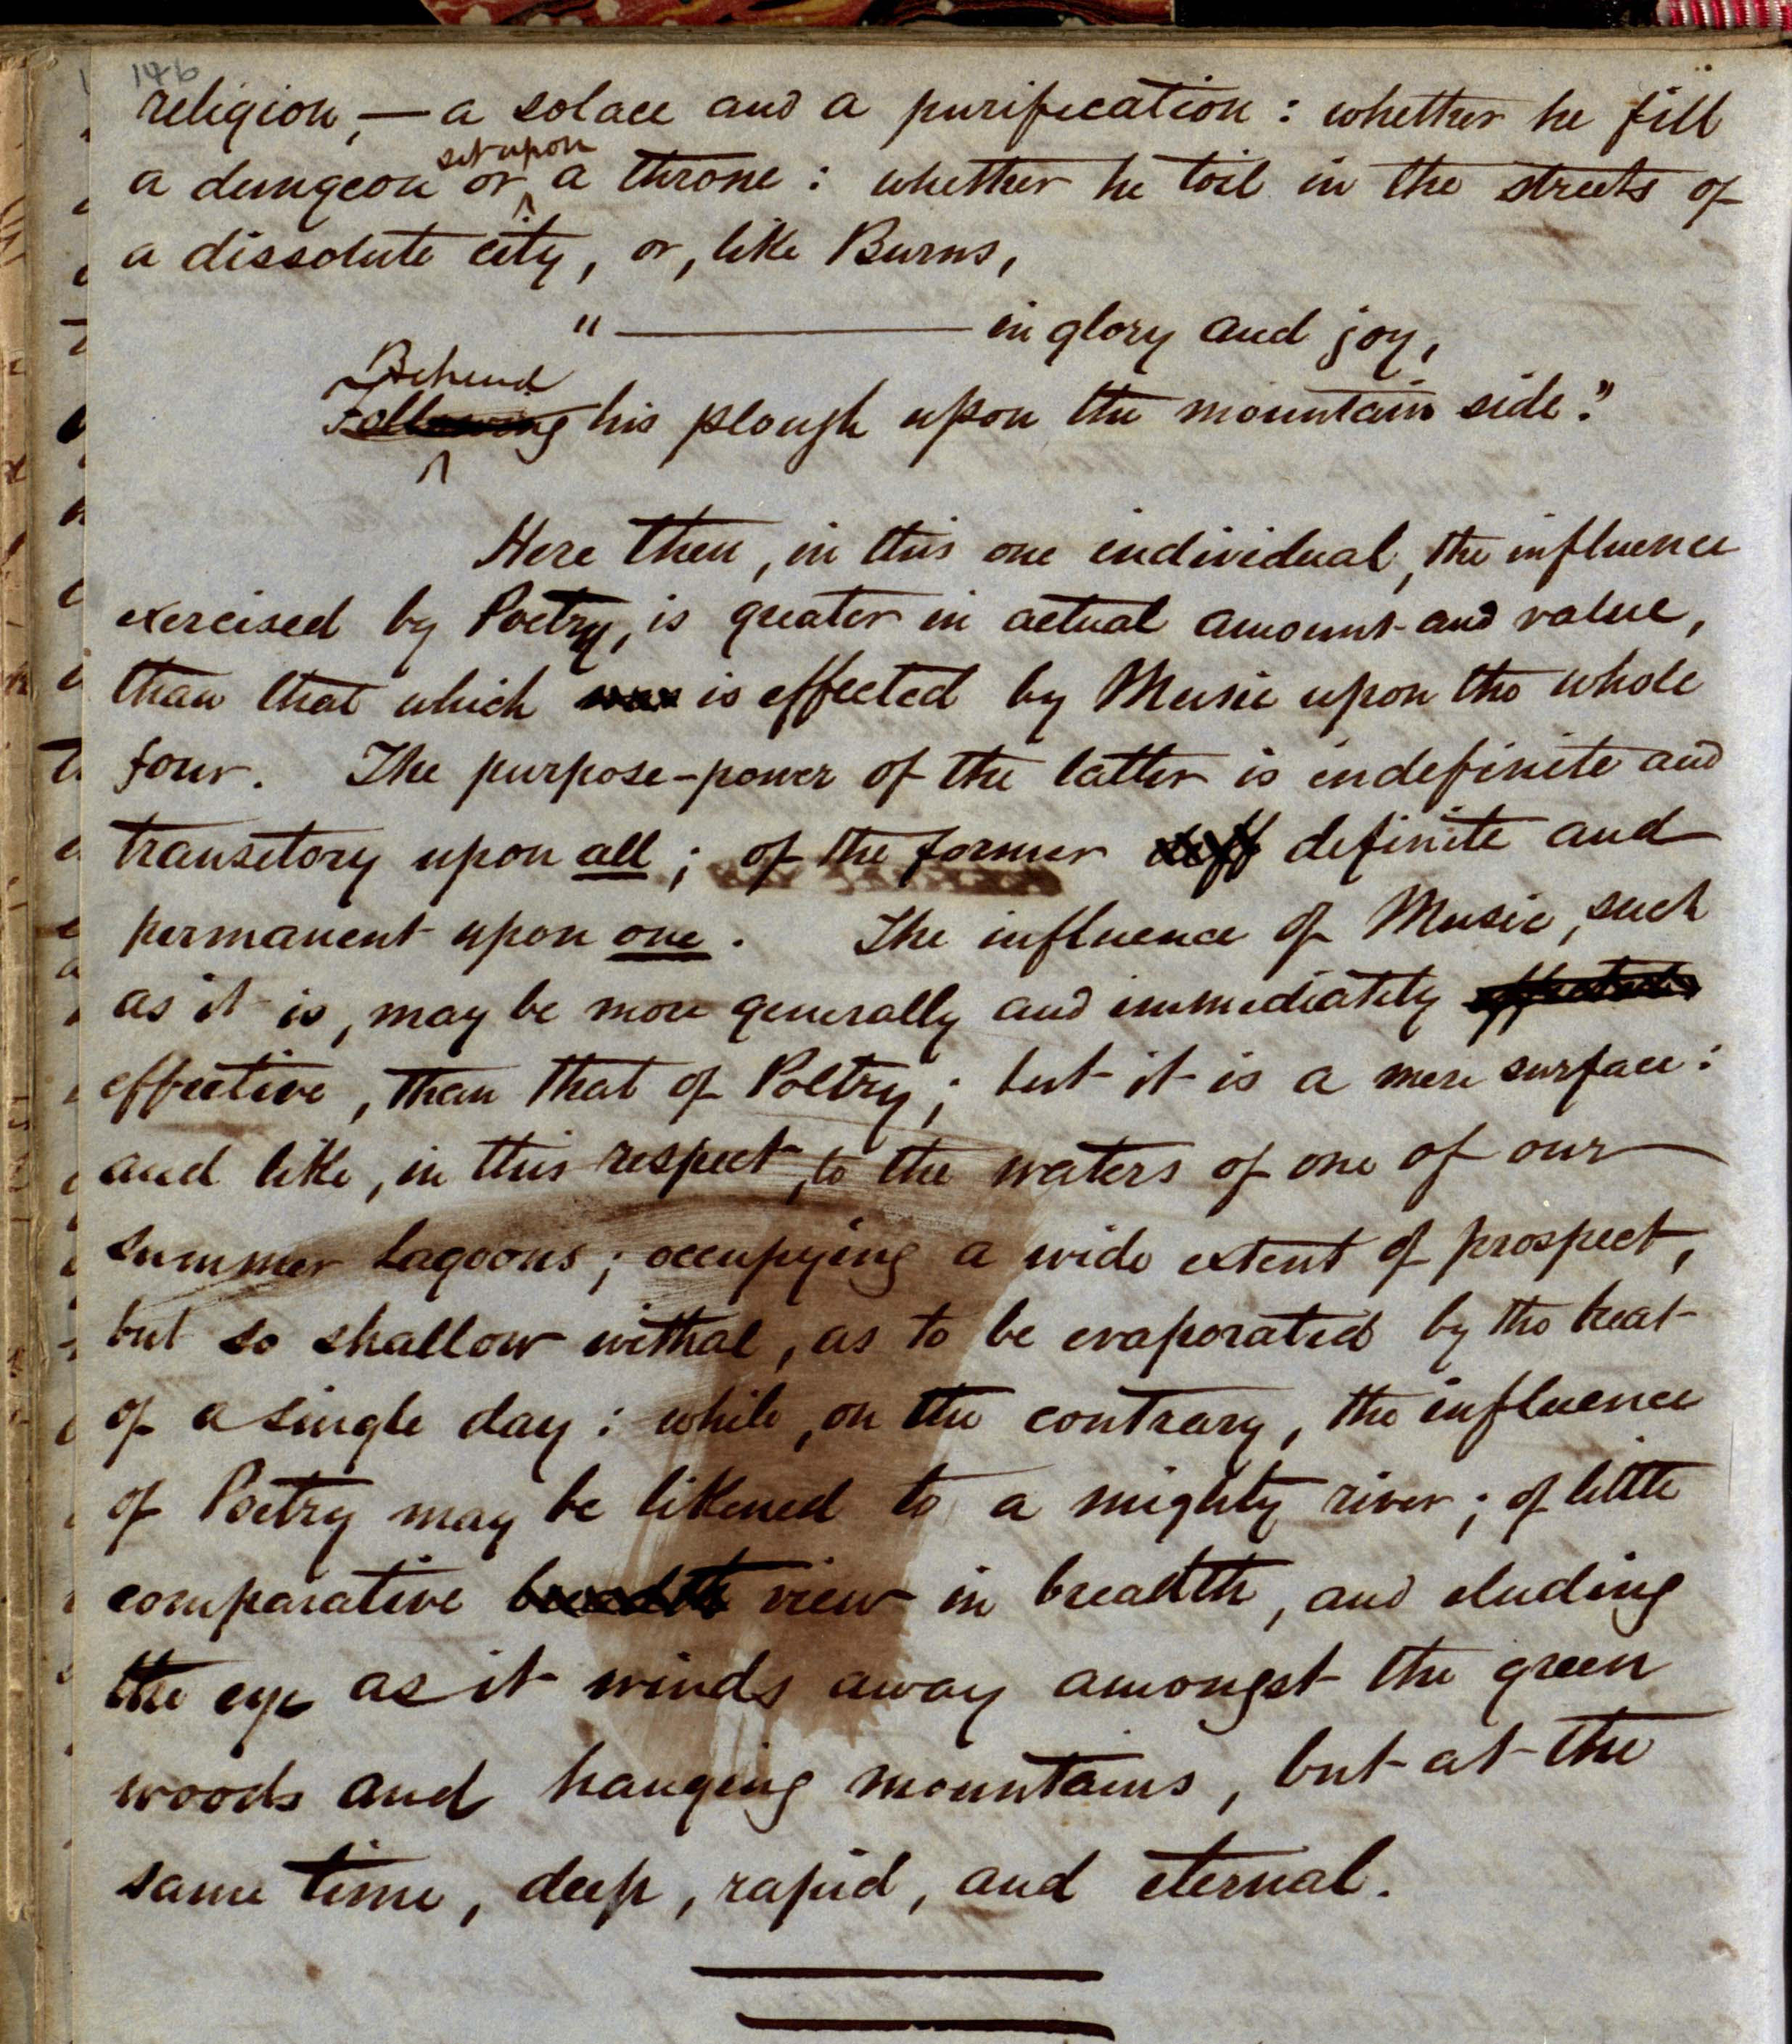 146
religion, — a solace and a purification : whether he fill
set upon
a dungeon or a throne : whether he toil in the streets of
a dissolute city, or, like Burns,
"——— in glory and joy,
Behind
Following his plough upon the mountain side."
Here then, in this one individual, the influence
exercised by Poetry, is greater in actual amount and value,
than that which was is effected by Music upon the whole
four. The purpose-power of the latter is indefinite and
transitory upon all ; of the former diff definite and
permanent upon one. The influence of Music, such
as it is, may be more generally and immediately
effective, than that of Poetry ; but it is a mere surface :
and like, in this respect, to the waters of one of our
summer lagoons ; occupying a wide extent of prospect,
but so shallow withal, as to be evaporated by the heat
of a single day : while, on the contrary, the influence
of Poetry may be likened to a mighty river ; of little
comparative breadth view in breadth, and eluding
the eye as it winds away amongst the green
woods and hanging mountains, but at the
same time, deep, rapid, and eternal.